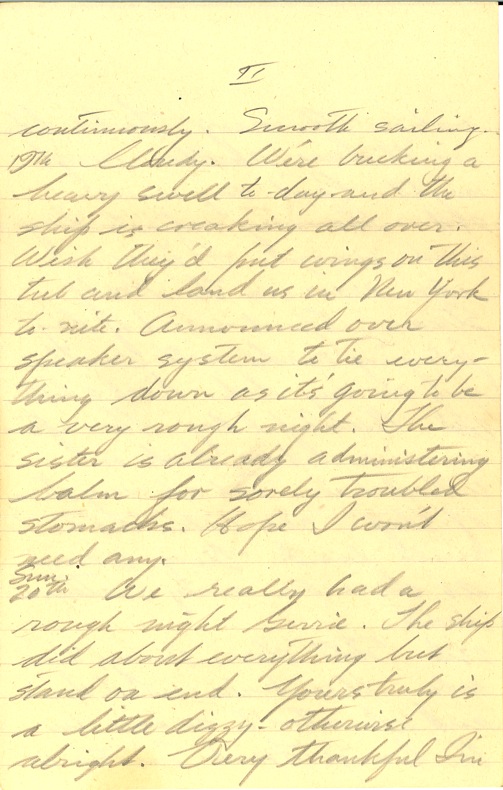 VI
continuously. Smooth sailing.
19th Cloudy. We're bucking a
heavy swell to-day and the
ship is creaking all over.
Wish they'd put wings on this
tub and land us in New York
to-nite. Announced over
speaker system to tie every-
thing down as it's going to be
a very rough night. The
sister is already administering
balm for sorely troubled
stomachs. Hope I won't
need any.
Sun.
20th We really had a
rough night Gerrie. The ship
did about everything but
stand on end. Yours truly is
a little dizzy - otherwise
alright. Very thankful I'm